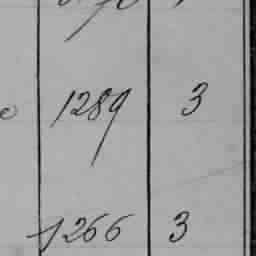 1289 3
1266 3